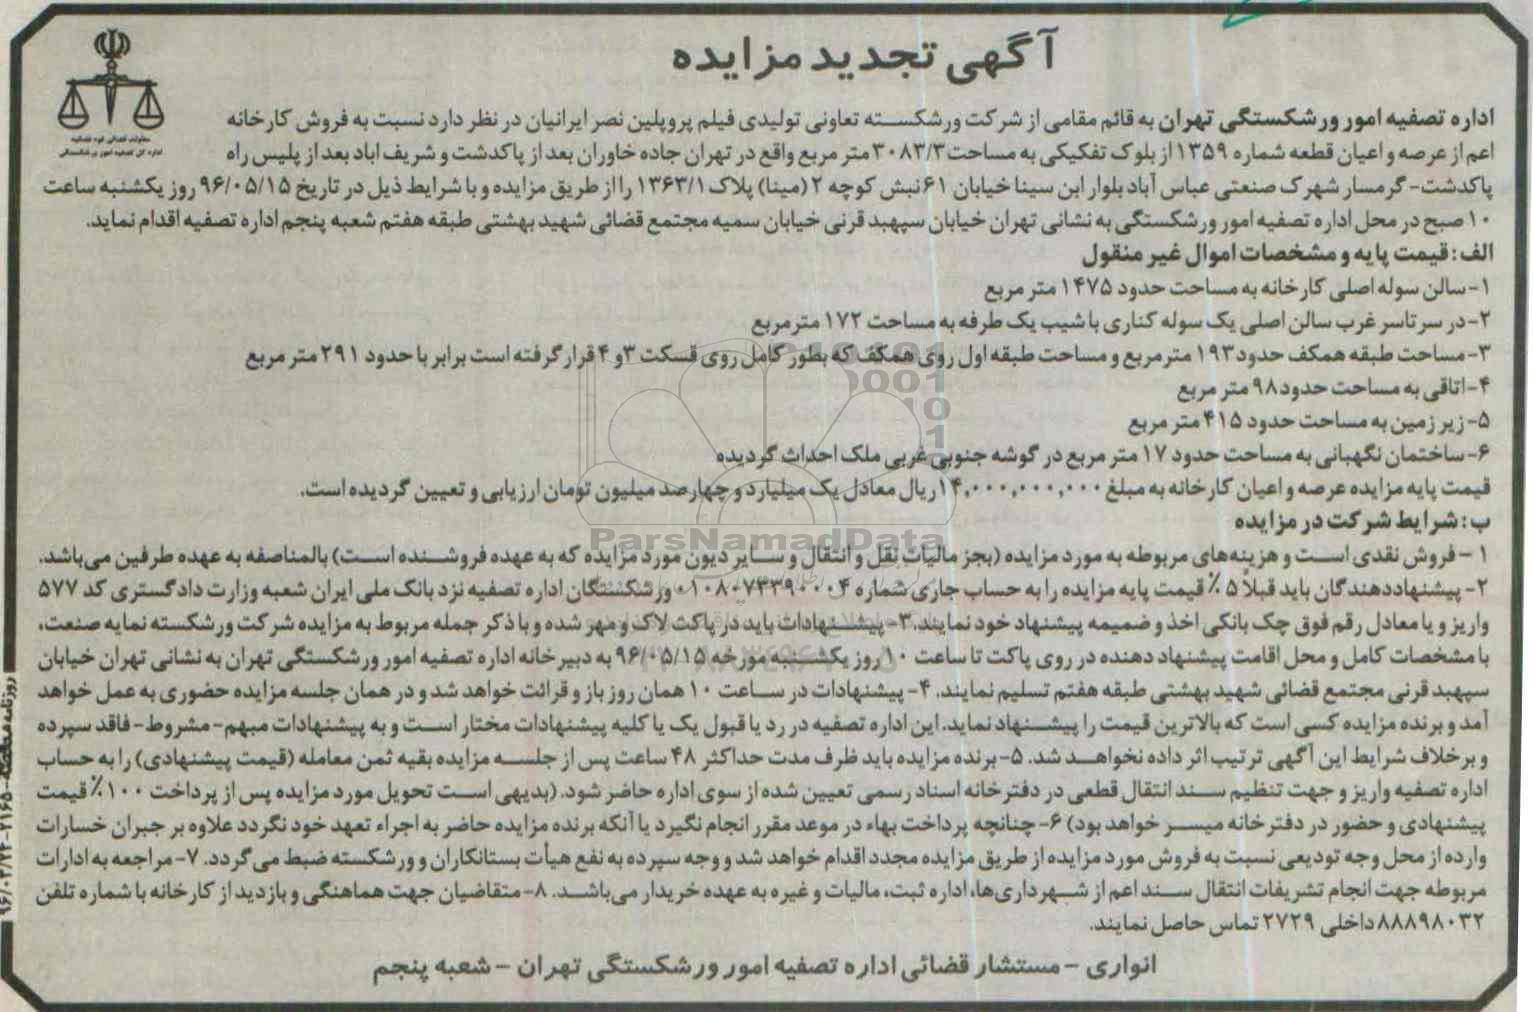 آگهی تجدید مزایده
معاونت قضائی قوه قضائیه
اداره کل تصفیه امور ورشکستگی
اداره تصفیه امور ورشکستگی تهران به قائم مقامی از شرکت ورشکسته تعاونی تولیدی فیلم پروپلین نصر ایرانیان در نظر دارد نسبت به فروش کارخانه
اعم از عرصه و اعیان قطعه شماره ۱۳۵۹ از بلوک تفکیکی به مساحت ۳۰۸۳/۳ متر مربع واقع در تهران جاده خاوران بعد از پاکدشت و شریف اباد بعد از پلیس راه
پاکدشت- گرمسار شهرک صنعتی عباس آباد بلوار ابن سینا خیابان ۶۱ نبش کوچه ۲ (مینا) پلاک ۱۳۶۳/۱ را از طریق مزایده و با شرایط ذیل در تاریخ ۹۶/۰۵/۱۵ روز یکشنبه ساعت
۱۰ صبح در محل اداره تصفیه امور ورشکستگی به نشانی تهران خیابان سپهبد قرنی خیابان سمیه مجتمع قضائی شهید بهشتی طبقه هفتم شعبه پنجم اداره تصفیه اقدام نماید.
الف: قیمت پایه و مشخصات اموال غیر منقول
۱-سالن سوله اصلی کارخانه به مساحت حدود ۱۴۷۵ متر مربع
۲-در سرتاسر غرب سالن اصلی یک سوله کناری با شیب یک طرفه به مساحت ۱۷۲ مترمربع
۳-مساحت طبقه همکف حدود ۱۹۳ مترمربع و مساحت طبقه اول روی همکف که بطور کامل روی قسکت ۳ و ۴ قرار گرفته است برابر با حدود ۲۹۱ متر مربع
۴-اتاقی به مساحت حدود ۹۸ متر مربع
۵-زیر زمین به مساحت حدود ۴۱۵ متر مربع
۶-ساختمان نگهبانی به مساحت حدود ۱۷ متر مربع در گوشه جنوبی غربی ملک احداث گردیده
قیمت پایه مزایده عرصه و اعیان کارخانه به مبلغ ۱۴,۰۰۰,۰۰۰,۰۰۰ ریال معادل یک میلیارد و چهارصد میلیون تومان ارزیابی و تعیین گردیده است.
ب: شرایط شرکت در مزایده
۱ - فروش نقدی است و هزینه‌های مربوطه به مورد مزایده (بجز مالیات نقل و انتقال و سایر دیون مورد مزایده که به عهده فروشنده است) بالمناصفه به عهده طرفین می‌باشد.
۲- پیشنهاددهندگان باید قبلا ۵٪ قیمت پایه مزایده را به حساب جاری شماره ۰۱۰۸۰۷۳۳۹۰۰۰۴ ورشکستگان اداره تصفیه نزد بانک ملی ایران شعبه وزارت دادگستری کد ۵۷۷
واریز و یا معادل رقم فوق چک بانکی اخذ و ضمیمه پیشنهاد خود نمایند. ۳- پیشنهادات باید در پاکت لاک و مهر شده و با ذکر جمله مربوط به مزایده شرکت ورشکسته نمایه صنعت،
با مشخصات کامل و محل اقامت پیشنهاد دهنده در روی پاکت تا ساعت ۱۰ روز یکشنبه مورخه ۹۶/۰۵/۱۵ به دبیرخانه اداره تصفیه امور ورشکستگی تهران به نشانی تهران خیابان
سپهبد قرنی مجتمع قضائی شهید بهشتی طبقه هفتم تسلیم نمایند. ۴- پیشنهادات در ساعت ۱۰ همان روز باز و قرائت خواهد شد و در همان جلسه مزایده حضوری به عمل خواهد
آمد و برنده مزایده کسی است که بالاترین قیمت را پیشنهاد نماید. این اداره تصفیه در رد یا قبول یک یا کلیه پیشنهادات مختار است و به پیشنهادات مبهم- مشروط- فاقد سپرده
و برخلاف شرایط این آگهی ترتیب اثر داده نخواهد شد. ۵- برنده مزایده باید ظرف مدت حداکثر ۴۸ ساعت پس از جلسه مزایده بقیه ثمن معامله (قیمت پیشنهادی) را به حساب
اداره تصفیه واریز و جهت تنظیم سند انتقال قطعی در دفترخانه اسناد رسمی تعیین شده از سوی اداره حاضر شود. (بدیهی است تحویل مورد مزایده پس از پرداخت ۱۰۰٪ قیمت
پیشنهادی و حضور در دفترخانه میسر خواهد بود) ۶- چنانچه پرداخت بهاء در موعد مقرر انجام نگیرد یا آنکه برنده مزایده حاضر به اجراء تعهد خود نگردد علاوه بر جبران خسارات
وارده از محل وجه تودیعی نسبت به فروش مورد مزایده از طریق مزایده مجدد اقدام خواهد شد و وجه سپرده به نفع هیأت بستانکاران و ورشکسته ضبط می گردد. ۷- مراجعه به ادارات
مربوطه جهت انجام تشریفات انتقال سند اعم از شهرداری‌ها، اداره ثبت، مالیات و غیره به عهده خریدار می‌باشد. ۸- متقاضیان جهت هماهنگی و بازدید از کارخانه با شماره تلفن
۸۸۸۹۸۰۳۲ داخلی ۲۷۲۹ تماس حاصل نمایند.
انواری - مستشار قضائی اداره تصفیه امور ورشکستگی تهران - شعبه پنجم
روزنامه مناقصه - ۲۱۶۵ - ۹۶/۰۴/۲۴
ParsNamadData